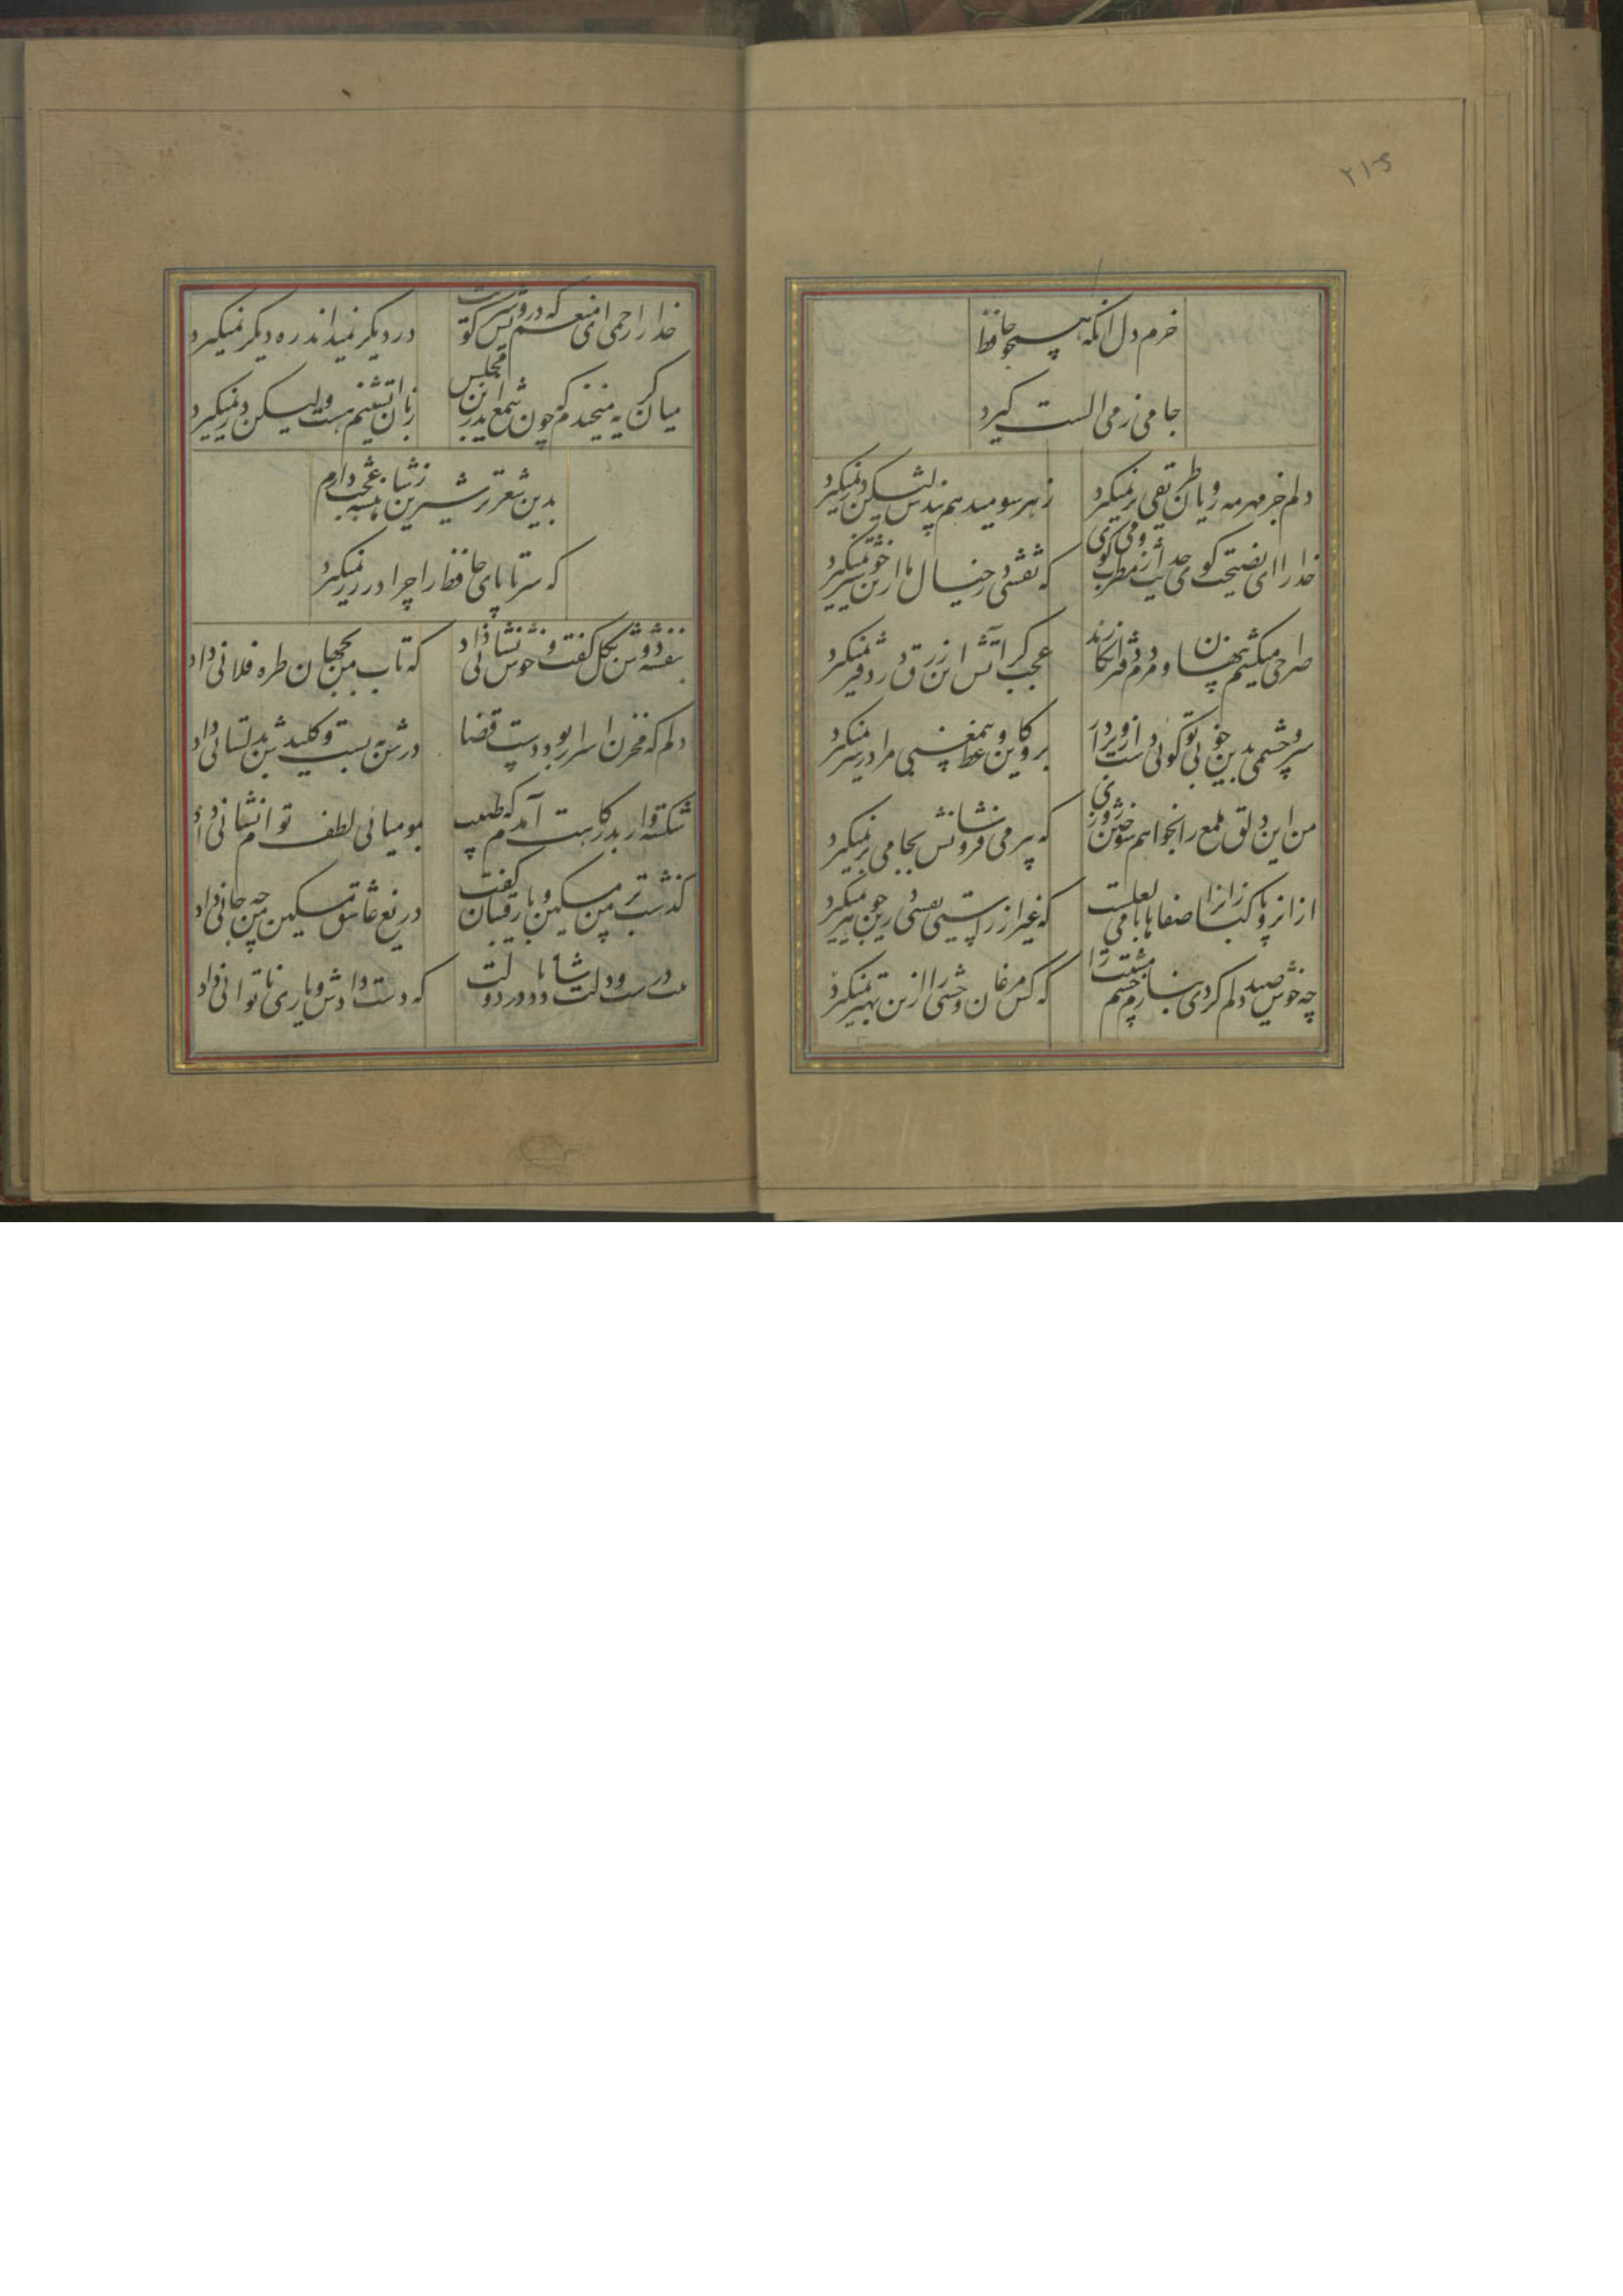 ۲۱۵
خرم دل آنکه همچو حافظ
جامی ز می الست گیرد
دلم جز مهر مه رویان طریقی بر نمیگیرد
ز هر سو میدهم پندش لیکن در نمیگیرد
خدا را ای نصیحت گوی حدیث از مطرب و می گوی
که نقشی در خیال ما ازین خوشتر نمیگیرد
صراحی میکشم پنهان و مردم دفتر انکارند
عجب گر آتش این زرق در دفتر نمیگیرد
سر و چشمی بدین خوبی تو گوئی دل ازو بردار
برو کاین وعظ بیمعنی مرا در سر نمیگیرد
من این دلق ملمع را بخواهم سوختن روزی
که پیر می فروشانش بجامی بر نمیگیرد
از آنرو پاکبازانرا صفاها با می لعلست
که غیر از راستی نقشی درین جوهر نمیگیرد
چه خوش صید دلم کردی بنازم چشم مستت را
که کس مرغان وحشی را ازین بهتر نمیگیرد
خدا را رحمی ای منعم که درویش سر کویت
در دیگر نمیداند ره دیگر نمیگیرد
میان گریه میخندم که چون شمع اندرین مجلس
زبان آتشینم هست ولیکن در نمیگیرد
بدین شعر تر شیرین ز شاهنشه عجب دارم
که سر تا پای حافظ را چرا در زر نمیگیرد
بنفشه دوش بگل گفت و خوش نشانی داد
که تاب من بجهان طره فلانی داد
دلم که مخزن اسرار بود دست قضا
درش به بست و کلیدش بدلستانی داد
شکسته وار بدرگاهت آمدم که طبیب
بمومیائی لطف توام نشانی داد
گذشت بر من مسکین و با رقیبان گفت
دریغ عاشق مسکین من چه جانی داد
که دست دادش و یاری ناتوانی داد